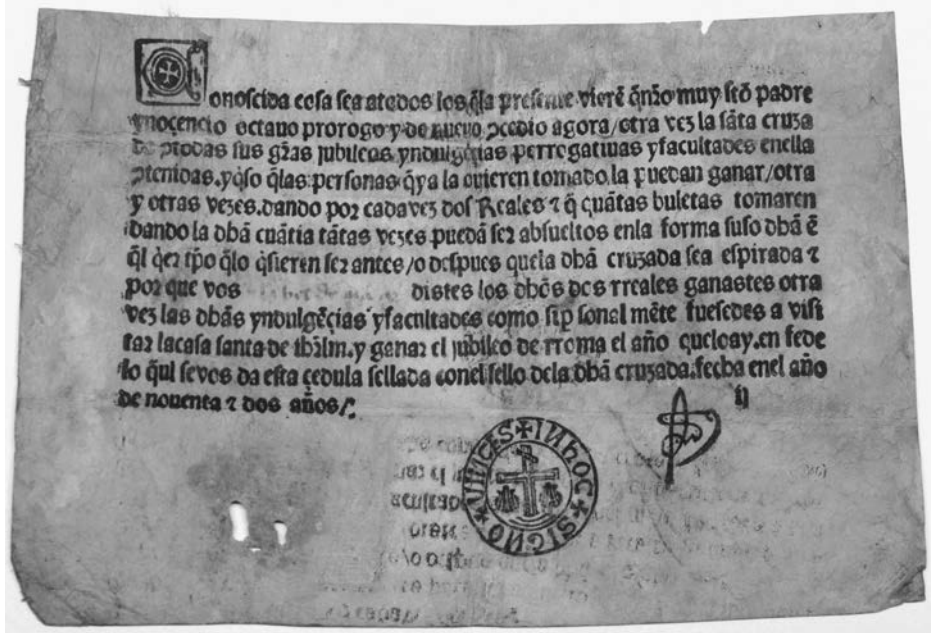 Conoscida cosa sea atodos los q̃la presente vierẽ q̃nr̃o muy sctõ padre
ynocencio octauo prorogo y de nueuo ↄcedio agora/otra vez la sãta cruza
da ↄtodas sus gr̃as jubileos yndulgẽcias perrogatiuas yfacultades enella
ↄtenidas.yq̃so q̃las personas q̃ya la ouieren tomado.la puedan ganar/otra
y otras vezes.dando por cada vez dos Reales ⁊ q̃ quãtas buletas tomaren
dando la dhã cuãtia tãtas vezes puedã ser absueltos enla forma suso dhã ẽ
q̃l q̃er tp̃o q̃lo q̃sieren ser antes/o despues quela dhã cruzada sea espirada ⁊
por que vos distes los dhõs dos rreales ganastes otra
vez las dhãs yndulgẽçias yfacultades como sip̱ sonal mẽte fuesedes a visi
tar lacasa santa de ihr̃lm.y ganar el jubileo de rroma el año queloay.en fede
lo q̃ul sevos da esta çedula sellada conel sello dela dhã cruzada.fecha enel año
de nouenta ⁊ dos años/.
ij
✠ INHOC ✶ SIGNO ✶ VINCES